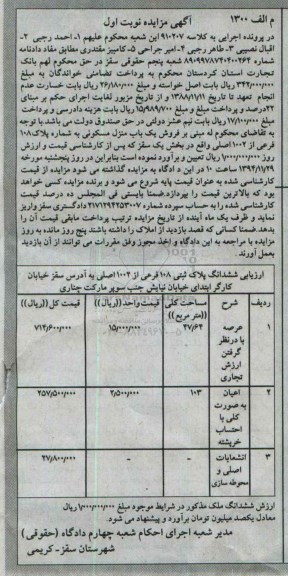 م الف ۱۳۰۰ آگهی مزایده نوبت اول
در پرونده اجرایی به کلاسه ۹۱۰۲۰۷ این شعبه محکوم علیهم ۱- احمد رجبی ۲-
اقبال نصیبی ۳- طاهر رجبی ۴- امیر جراحی ۵- کامبیز مقتدری مطابق مفاد دادنامه
شماره ۸۹۰۹۹۷۸۷۴۰۴۰۰۲۶۴ شعبه پنجم حقوقی سقز در حق محکوم لهم بانک
تجارت استان کردستان محکوم به پرداخت تضامنی خواندگان به مبلغ
۳۴۲/۰۰۰/۰۰۰ ریال بابت اصل خواسته و مبلغ ۲۶/۱۸۰/۰۰۰ ریال بابت خسارت عدم
انجام تعهد تا تاریخ ۱۳۸۸/۱۱/۱۱ و از تاریخ مزبور لغایت اجرای حکم بر مبنای
۲۲درصد و پرداخت مبلغ و مبلغ ۱۵/۹۸۹/۷۰۰ ریال بابت هزینه دادرسی و پرداخت
مبلغ ۱۷/۱۰۰/۰۰۰ ریال بابت نیم عشر دولتی در حق صندوق دولت می باشد با توجه
به تقاضای محکوم له مبنی بر فروش یک باب منزل مسکونی به شماره پلاک ۱۰۸
فرعی از ۱۰۰۲ اصلی واقع در بخش یک سقز که پس از کارشناسی قیمت و ارزش
۱/۰۰۰/۰۰۰/۰۰۰ ریال تعیین و برآورد نموده است بنابراین در روز پنجشنبه مورخه
۱۳۹۲/۱۱/۲۹ ساعت ۱۰ در این د اگاه به مزایده گذاشته می شود مزایده از قیمت
کارشناسی شده به عنوان قیمت پایه شروع می شود و برنده مزایده کسی خواهد
بود که بالاترین قیمت را بپردازد ضمنا بایستی فی المجلس ده درصد قیمت
کارشناسی شده را به حساب سپرده شماره ۲۱۷۱۲۹۲۲۵۳۰۰۷ دادگستری سقز واریز
نماید و ظرف یک ماه آینده از تاریخ مزایده ترتیب پرداخت مابقی قیمت آن را
بدهد ضمنا کسانی که قصد بازدید از املاک را داشته باشند پنج روز مانده به روز
مزایده با مراجعه به این دادگاه و اخذ مجوز وفق مقررات می توانند از آن بازدید
بعمل آورند.
ارزیابی ششدانگ پلاک ثبتی ۱۰۸ فرعی از ۱۰۰۲ اصلی به آدرس سقز خیابان
کارگر ابتدای خیابان نیایش جنب سوپر مارکت چناری
ردیف شرح مساحت کلی ((متر مربع)) قیمت واحد ((ریال)) قیمت کل ((ریال))
۱ عرصه با درنظر گرفتن ارزش تجاری ۴۷/۶۴ ۱۵/۰۰۰/۰۰۰ ۷۱۴/۶۰۰/۰۰۰
۲ اعیان به صورت کلی با احتساب خرپشته ۱۰۳ ۲/۵۰۰/۰۰۰ ۲۵۷/۵۰۰/۰۰۰
۳ انشعابات اصلی و محوطه سازی - - ۲۷/۸۰۰/۰۰۰
ارزش ششدانگ ملک مذکور در شرایط موجود مبلغ ۱/۰۰۰/۰۰۰/۰۰۰ ریال
معادل یکصد میلیون تومان برآورد و پیشنهاد می شود.
مدیر شعبه اجرای احکام شعبه چهارم دادگاه (حقوقی)
شهرستان سقز- کریمی